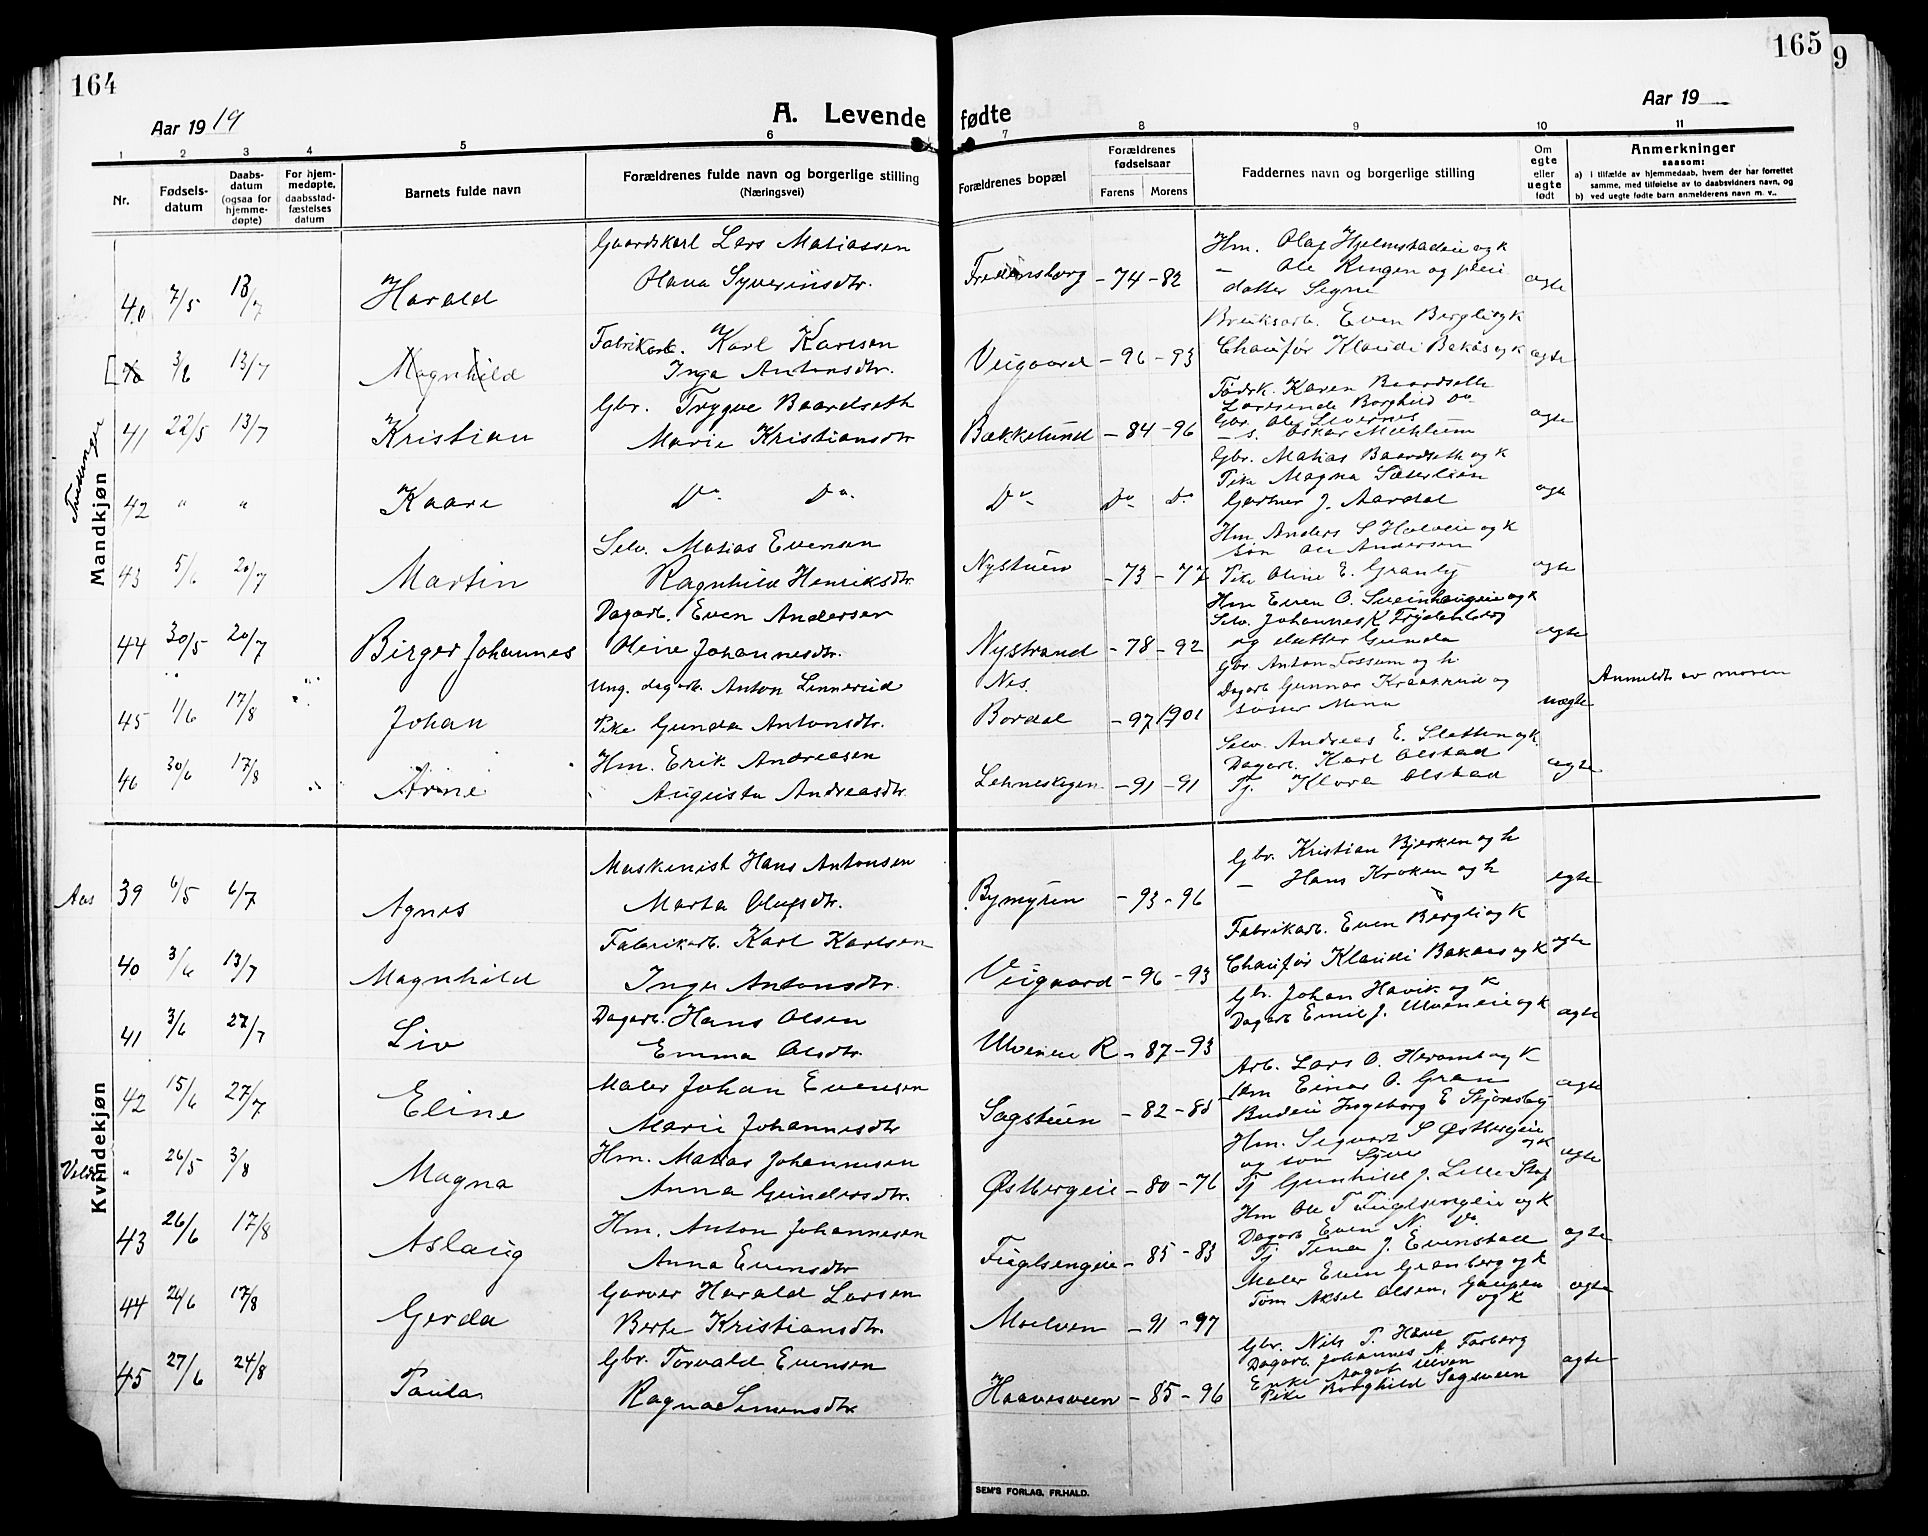 164
165
9
Aar 1919
A. Levende fødte
Aar 19
1 2 3 4 5 6 7 8 9 10 11
Nr.
Fødsels-
datum
Daabs-
datum
(ogsaa for
hjemme-
døpte)
For hjem-
medøpte,
daabsstad-
fæstelses
datum
Barnets fulde navn
Forældrenes fulde navn og borgerlige stilling
(Næringsvei)
Forældrenes bopæl
Forældrenes
fødselsaar
Farens Morens
Faddernes navn og borgerlige stilling
Om
egte
eller
uegte
født
Anmerkninger
saasom:
a) i tilfælde av hjemmedaab, hvem der har forrettet
samme, med tilføielse av to daabsvidners navn, og
b) ved uegte fødte barn anmelderens navn m. v..
Mandkjøn
Gaardskarl Lars Matiassen
40 7/5 13/7 Harald Olava Syverinsdtr. Fredensborg -74-82
Hm. Olaf Hjelmstadeie og k
- Ole Ringen og pleie
datter Signe
egte
40 3/6 13/7 Magnhild
Fabrikarb. Karl Karlsen
Inga Antonsdtr.
Veigaard -96-93
Bruksarb. Even Bergli og k
Chaufør Klaudi Bakaas og k
egte
Tvillinger
41 22/5 13/7 Kristian
Gbr. Trygve Baardseth
Marie Kristiansdtr
Bækkelund -84-96
Fadrk. Karen Baardseth
Borghild Do
Gbr. Ole
- s. Oskar Mæhlum
egte
42 " " Kaare Do Do. Do Do Do
Gbr. Matias Baardseth og k
Pike Magna Sæterlien
Gartner J. Aardal
egte
43 5/6 20/7 Martin
Selv. Matias Evensen
Ragnhild Henriksdtr
Nystuen -73-77
Hm Anders S Holveie og k
søn Ole Andersen
Pike Oline E. Granly
egte
44 30/5 20/7 Birger Johannes
Dagarb. Even Andersen
Oline Johannesdtr.
Nystrand -78-92
Hm Even O. Sveinhaugeie og k
Selv. Johannes K Frydenberg
og datter Gunda
egte
45 1/6 17/8 Johan
Ung. dagarb. Anton Linnerud
Pike Gunda Antonsdtr.
Nes.
Bordal -97 1901
Gbr Anton Fossum og h
Dagarb Gunnar Kraakrud og
søster Mina
uegte
Anmeldt av moren
46 30/6 17/8 Arne
Hm. Erik Andreasen
Augusta Andreasdtr.
Lehneskogen -91-91
Selv. Andreas E. Sletten og k.
Dagarb. Karl Olstad
Tj. Klara Olstad
egte
Kvindekjøn
Aas 39 6/5 6/7 Agnes
Maskinist Hans Antonsen
Marta Olufsdtr.
Bymyren -93-96
Gbr. Kristian Bjerken og h
- Hans Kroken og h
egte
40 3/6 13/7 Magnhild
Fabrikarb. Karl Karlsen
Inga Antonsdtr.
Veigaard -96-93
Fabrikarb. Even Bergli og k
Chaufør Klaudi Bakaas og k
egte
41 3/6 27/7 Liv
Dagarb. Hans Olsen
Emma Olsdtr.
Ulveneie R -87-93
Gbr. Johan Havik og k
Dagarb Emil J. Ulveneie og k
egte
42 15/6 27/7 Eline
Maler Johan Evensen
Marie Johannesdtr
Sagstuen -82-85
Arb. Lars O. Heramb og k
Um Einar O. Gran
Budeie Ingeborg E Skjønsby
egte
Veldre " 26/5 3/8 Magna
Hm. Matias Johannesen
Anna Gundersdtr.
Østbergeie -80-76
Hm. Sigvart S Østbergeie
og k
og søn Syver
Tj Gunhild J. Lille Skap
egte
43 26/6 17/8 Aslaug
Hm. Anton Johannesen
Anna Evensdtr
Fuglsengeie -85-83
Hm Ole T Fuglsengeie og k
Dagarb Even N. Do
Tj Tina J. Evenstad
egte
44 26/6 17/8 Gerda
Garver Harald Larsen
Berte Kristiansdtr.
Moelven -91-97
Maler Even Granberg og k
Tøm Aksel Olsen, Gaupen
og k
egte
45 27/6 24/8 Paula
Gbr. Torvald Evensen
Ragna Simensdtr
Haavesveen -85-96
Gbr. Nils P. Have
Dagarb. Johannes A. Farberg
Enke Aagot Ulven
Pike Borghild Sagsveen
egte
SEM'S FORLAG, FR.HALD.